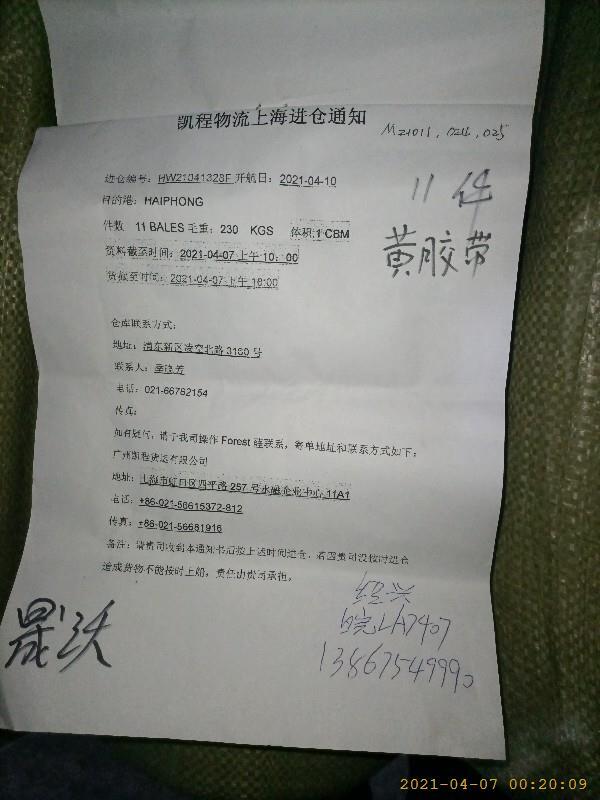 凯程物流上海进仓通知
M21011, 024, 025
进仓编号：HW21041328F 开航日：2021-04-10
目的港：HAIPHONG
11件
件数 11 BALES 毛重：230 KGS 体积:1 CBM
黄胶带
资料截至时间：2021-04-07 上午 10：00
货截至时间：2021-04-07 上午 10:00
仓库联系方式：
地址：浦东新区凌空北路 3160 号
联系人：
电话：021-66762154
传真：
如有疑问，请于我司操作 Forest 联系，寄单地址和联系方式如下：
广州凯程货运有限公司
地址：上海市虹口区四平路 257 号 企业中心 11A1
电话：+86-021-56615372-812
传真：+86-021-56681916
备注：请贵司收到本通知书后按上述时间进仓，若因贵司没按时进仓
造成货物不能按时上船，责任由贵司承担。
绍兴
皖LA7407
13867549990
晟沃
2021-04-07 00:20:09